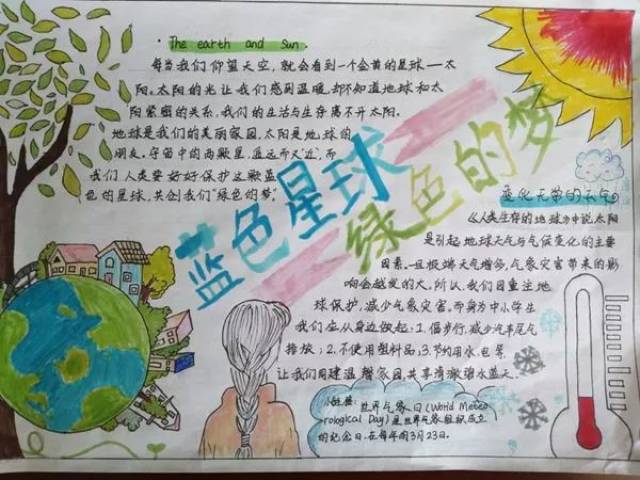 · The earth and sun.
每当我们仰望天空,就会看到一个金黄的星球——太
阳。太阳的光让我们感到温暖,却不知道地球和太
阳紧密的关系,我们的生活与生存离不开太阳。
地球是我们的美丽家园,太阳是地球的
朋友。宇宙中的两颗星,遥远而又近,而
我们人类要好好保护这颗蓝
色的星球,共创我们"绿色的梦"。
蓝色星球
绿色的梦
变化无常的天气
《人类生存的地球》中说,太阳
是引起地球天气与气候变化的主要
因素。且极端天气增多,气象灾害带来的影
响会越发的大,所以,我们因重注地
球保护,减少气象灾害。而身为中小学生
我们应从身边做起:1.倡步行,减少汽车尾气
排放;2.不使用塑料品;3.节约用水、电等
让我们同建温馨家园,共享清澈碧水蓝天.
世界气象日(World Meteo
rological Day)是世界气象组织成立
的纪念日,在每年的3月23日。